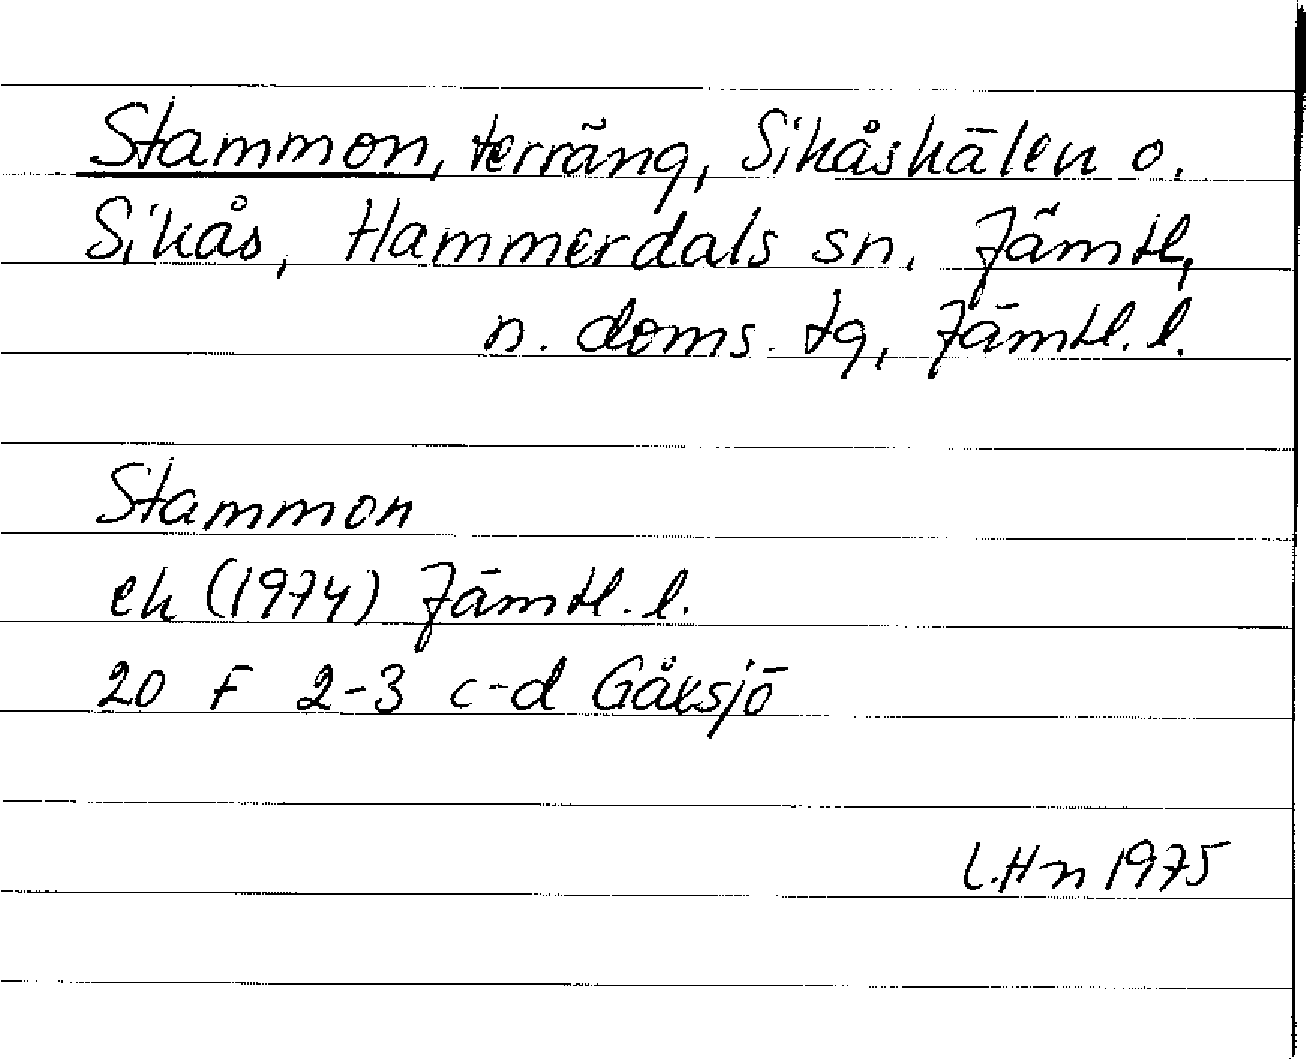 Stammon, terräng, Sikåskälen o.
Sikås, Hammerdals sn. Jämtl,
n. doms. tg, Jämtl. l.
Stammon
ek (1974) Jämtl. l.
20 F 2-3 c-d Gåxsjö
L.Hn 1975